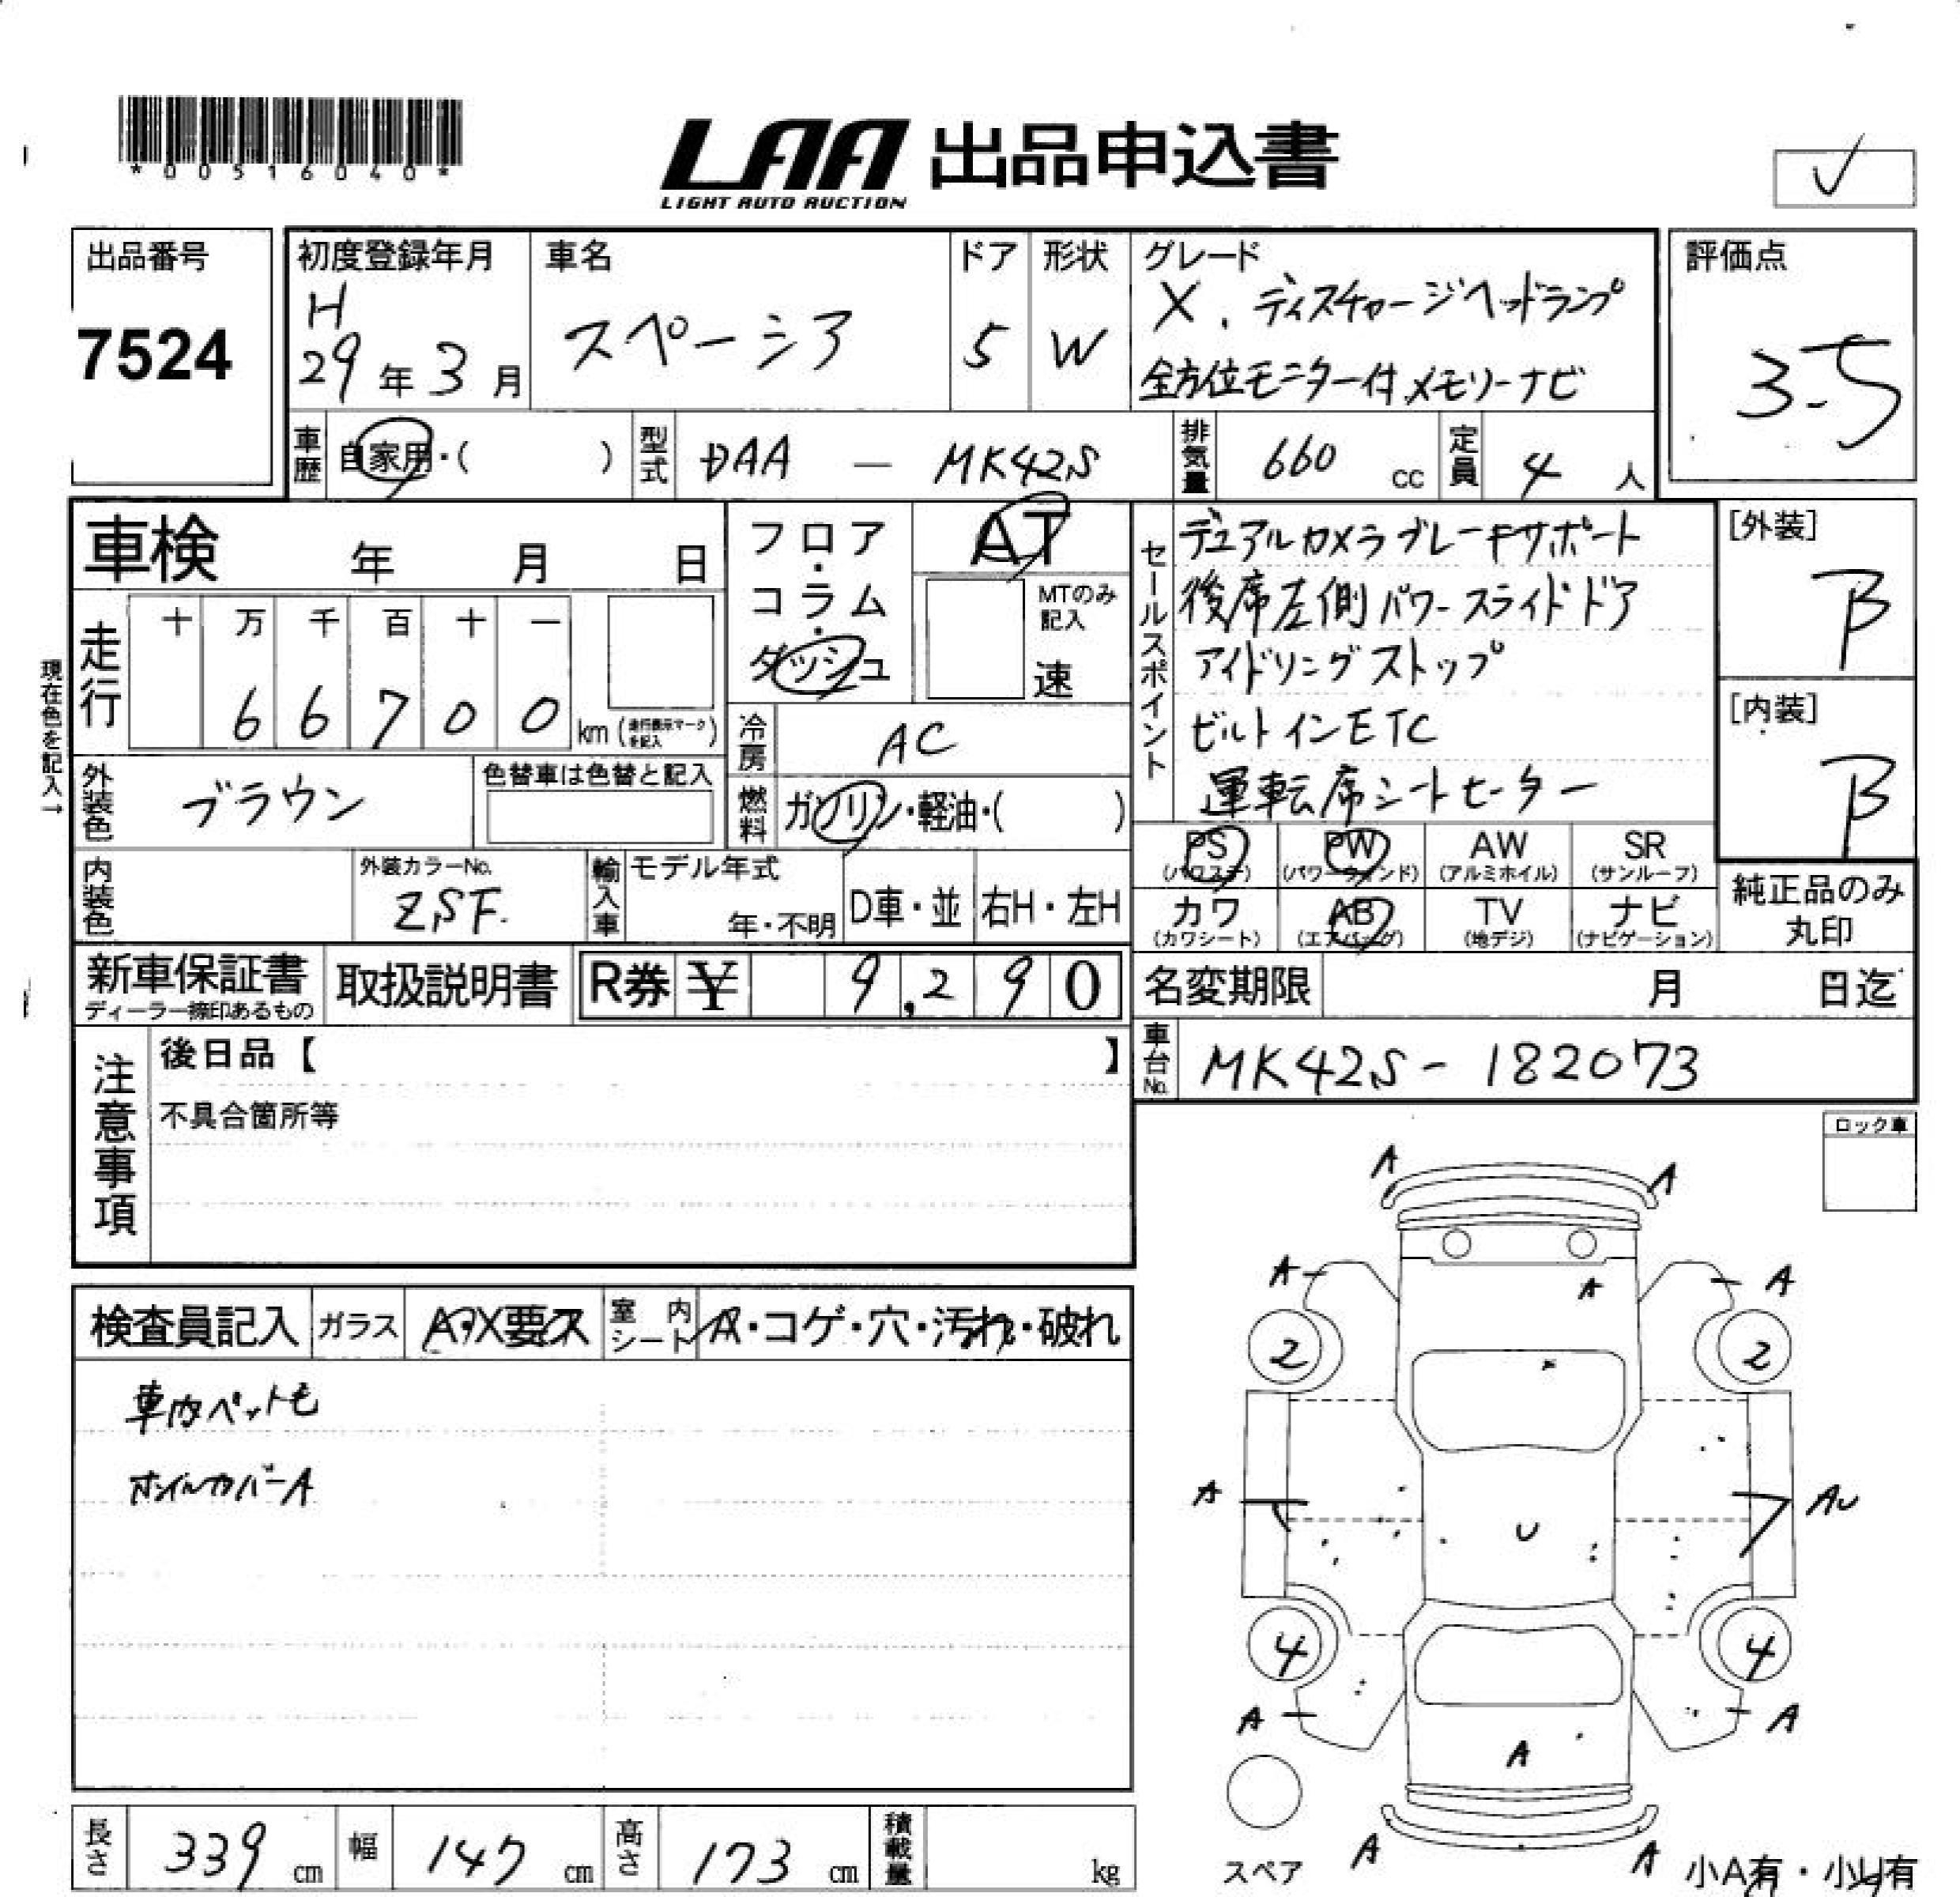 *00516040*
LAA 出品申込書
LIGHT AUTO AUCTION
✓
出品番号
7524
初度登録年月
H
29年3月
車名
スペーシア
ドア
5
形状
W
グレード
X、ディスチャージヘッドランプ
全方位モニター付メモリーナビ
評価点
3.5
車歴
自家用・( )
型式
DAA — MK42S
排気量
660 cc
定員
4 人
車検 年 月 日
現在色を記入→
走行
十 万 千 百 十 一
6 6 7 0 0 km (走行表示マークを記入)
フロア・コラム・ダッシュ
AT
MTのみ
記入
速
冷房
AC
燃料
ガソリン・軽油・( )
外装色
ブラウン
色替車は色替と記入
内装色
外装カラーNo.
ZSF.
輸入車
モデル年式
年・不明
D車・並
右H・左H
セールスポイント
デュアルカメラブレーキサポート
後席左側パワースライドドア
アイドリングストップ
ビルトインETC
運転席シートヒーター
[外装]
B
[内装]
B
PS
(パワステ)
PW
(パワーウィンド)
AW
(アルミホイル)
SR
(サンルーフ)
カワ
(カワシート)
AB
(エアバッグ)
TV
(地デジ)
ナビ
(ナビゲーション)
純正品のみ
丸印
新車保証書
ディーラー捺印あるもの
取扱説明書
R券 ¥ 9,290
名変期限 月 日迄
車台No.
MK42S - 182073
注意事項
後日品【 】
不具合箇所等
ロック車
検査員記入
ガラス
A・X要ス
室内
シート
A・コゲ・穴・汚れ・破れ
車内ペット毛
ホイルカバーA
A A
A A A
2 2
A U AU
4 4
A A A
A A
スペア
小A有・小U有
長さ
339 cm
幅
147 cm
高さ
173 cm
積載量
kg